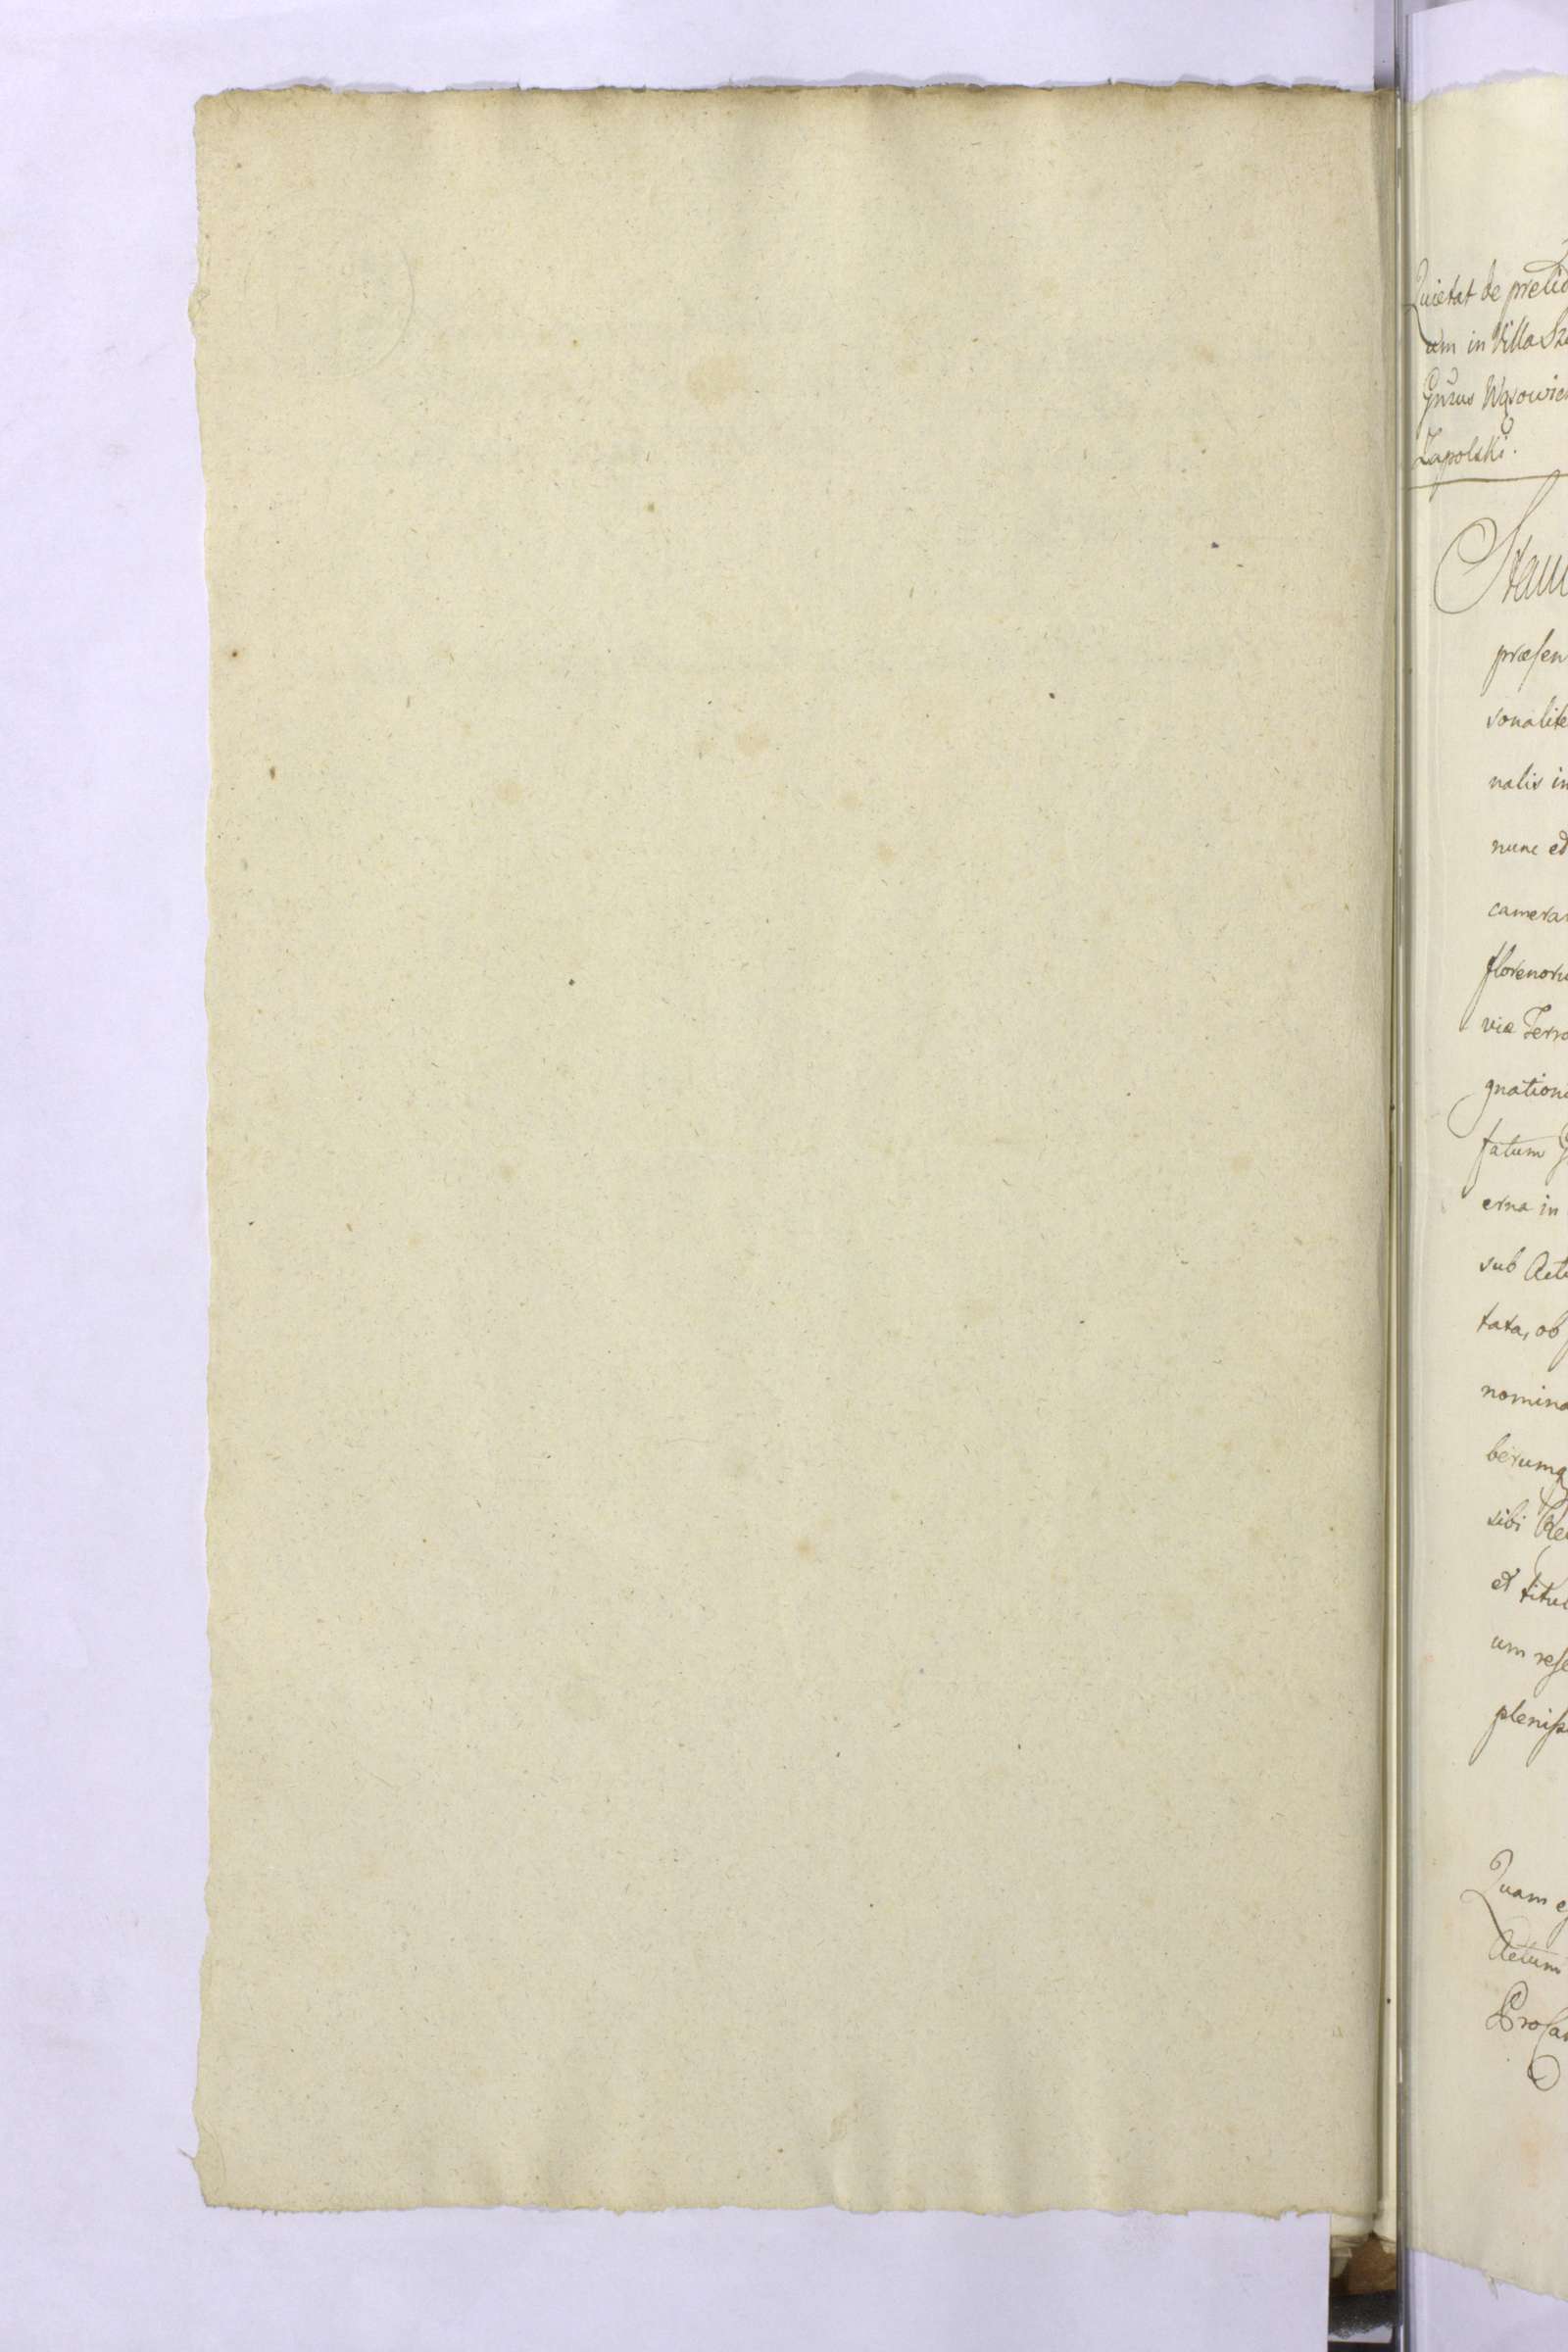 Quietat de pretio
um in Villa Sze
Gnrus Wąsowicz
Zapolski.
Stani
præsen
sonalite
nalis in
nunc ed
camerar
florenoru
viæ Terr
gnation
fatum G
erna in
sub Actu
tata, ob
nomina
berumq
sibi Re
et titu
um rese
pleniss
Quam e
Actum